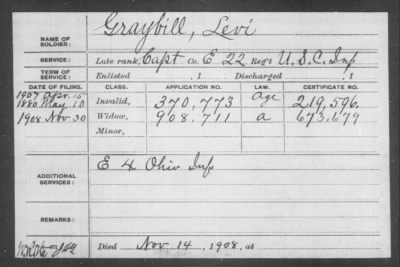 NAME OF SOLDIER: Graybill, Levi
SERVICE: Late rank, Capt Co. E 22 Reg't U.S.C. Inf
TERM OF SERVICE: Enlisted , 1 Discharged , 1
DATE OF FILING. CLASS. APPLICATION NO. LAW. CERTIFICATE NO.
1907 Apr. 15 Age
1880 May 10 Invalid, 370,773 219,596
1908 Nov. 30 Widow, 908,711 a 673,679
Minor,
ADDITIONAL SERVICES: E 4 Ohio Inf
REMARKS:
Died Nov 14, 1908, at